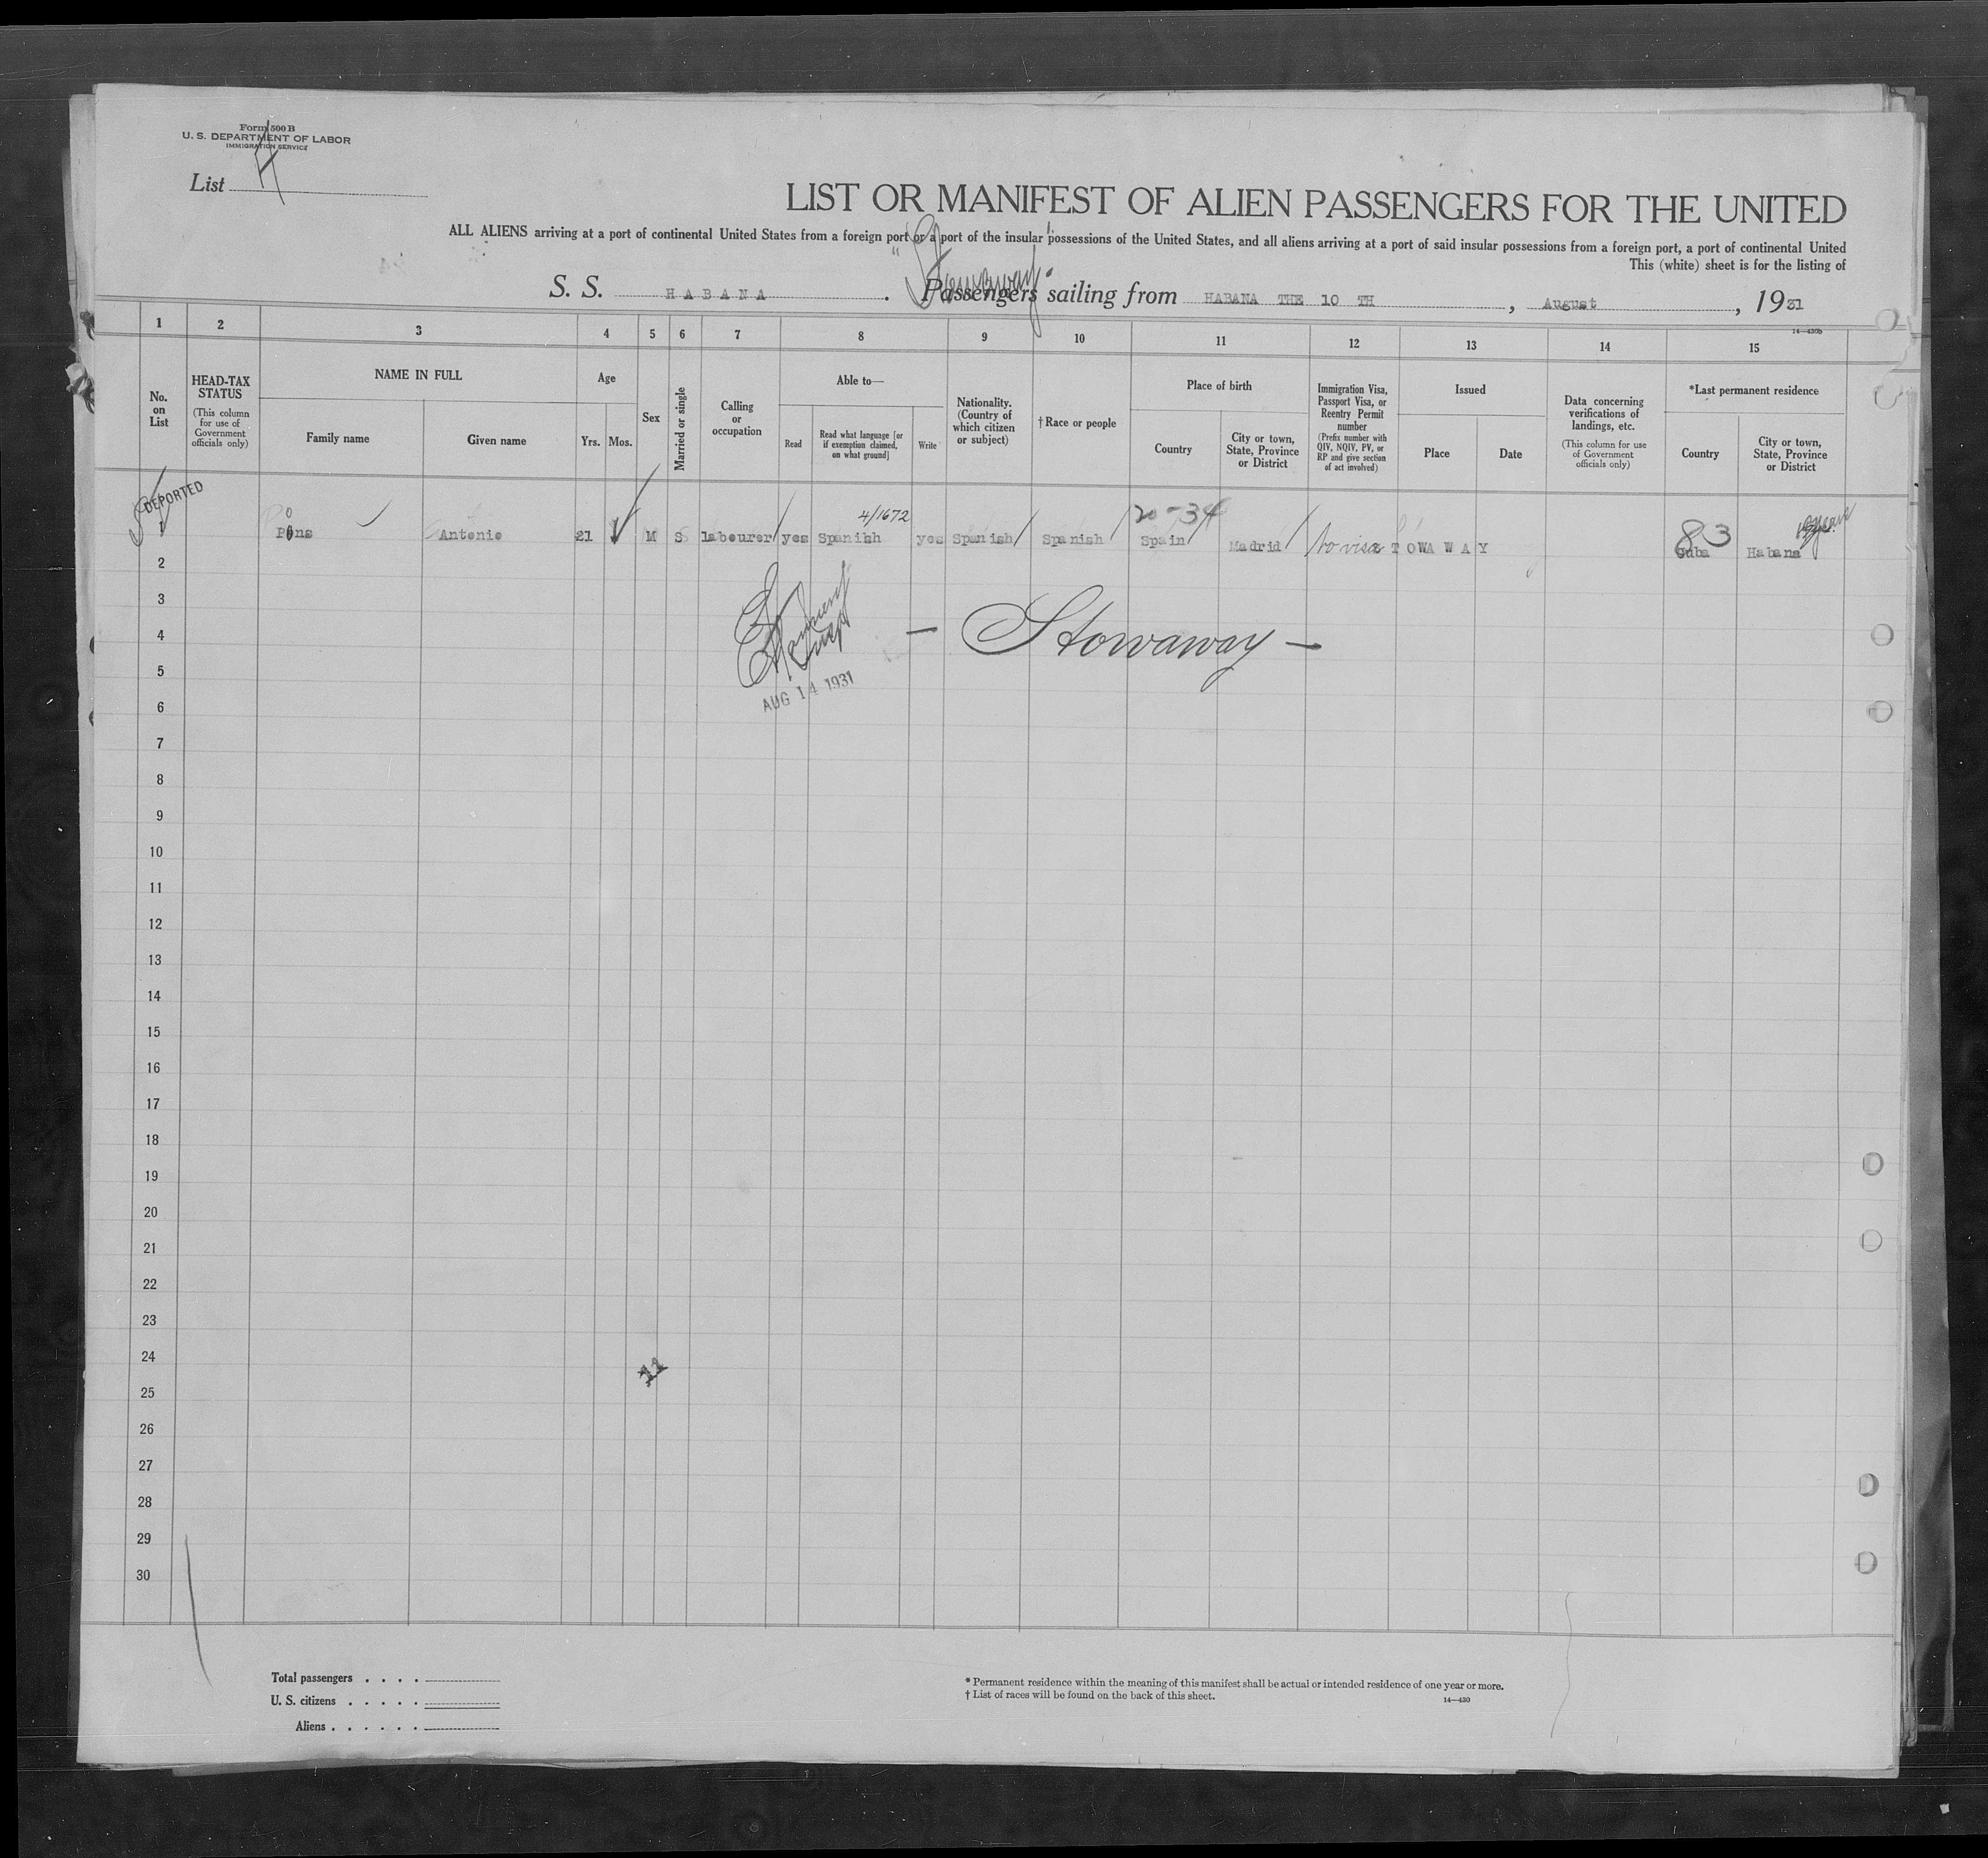 Form 500 B
U. S. DEPARTMENT OF LABOR
IMMIGRATION SERVICE
List 4
LIST OR MANIFEST OF ALIEN PASSENGERS FOR THE UNITED
ALL ALIENS arriving at a port of continental United States from a foreign port or a port of the insular possessions of the United States, and all aliens arriving at a port of said insular possessions from a foreign port, a port of continental United
This (white) sheet is for the listing of
Stowaway
S. S. HABANA . Passengers sailing from HABANA THE 10 TH , August , 1931
14—430b
1 2 3 4 5 6 7 8 9 10 11 12 13 14 15
No. on List
HEAD-TAX STATUS
(This column for use of Government officials only)
NAME IN FULL
Family name
Given name
Age
Yrs.
Mos.
Sex
Married or single
Calling or occupation
Able to—
Read
Read what language [or if exemption claimed, on what ground]
Write
Nationality. (Country of which citizen or subject)
† Race or people
Place of birth
Country
City or town, State, Province or District
Immigration Visa, Passport Visa, or Reentry Permit number
(Prefix number with QIV, NQIV, PV, or RP and give section of act involved)
Issued
Place
Date
Data concerning verifications of landings, etc.
(This column for use of Government officials only)
*Last permanent residence
Country
City or town, State, Province or District
DEPORTED
4/1672
20-34
83
1 Pons Antonio 21 M S labourer yes Spanish yes Spanish Spanish Spain Madrid No visa STOWAWAY Cuba Habana
2
3
4
— Stowaway —
5
AUG 14 1931
6
7
8
9
10
11
12
13
14
15
16
17
18
19
20
21
22
23
24
11
25
26
27
28
29
30
Total passengers . . . .
U. S. citizens . . . . .
Aliens . . . . . .
* Permanent residence within the meaning of this manifest shall be actual or intended residence of one year or more.
† List of races will be found on the back of this sheet.
14—430